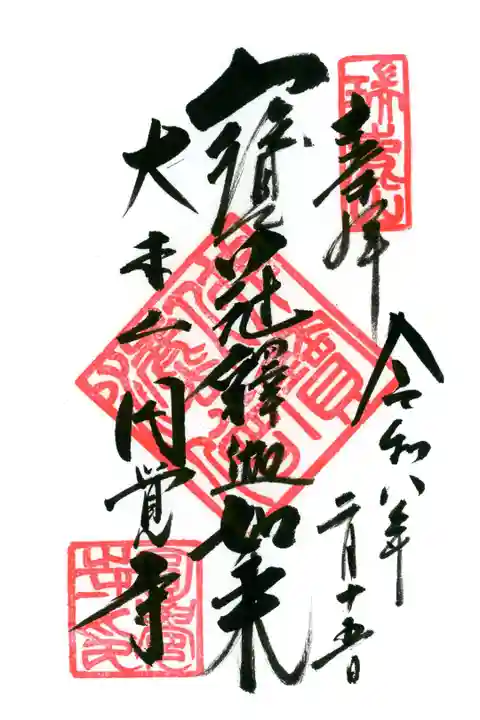 奉拝
令和八年
二月十五日
寶冠釋迦如来
大本山円覚寺
瑞鹿山